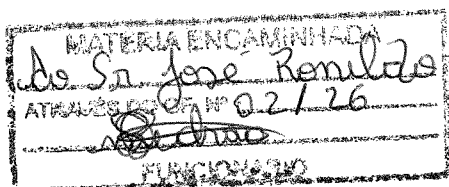 MATERIA ENCAMINHADA
Ao Sr. José Ronildo
ATRAVÉS DO OFA Nº 02/26
FUNCIONARIO